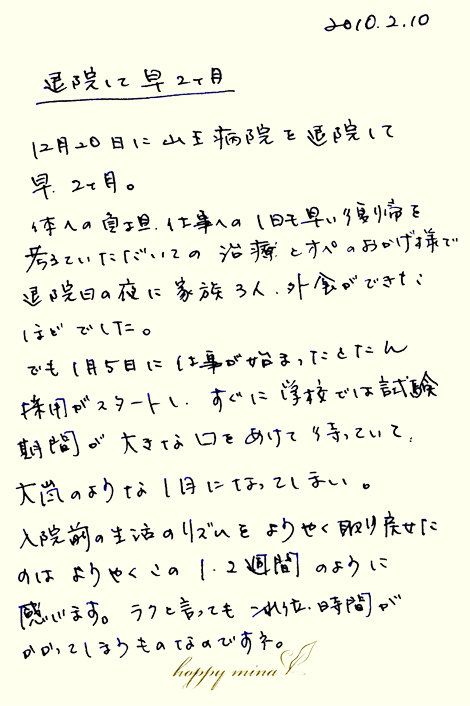 2010.2.10
退院して早2ヶ月
12月20日に山王病院を退院して
早、2ヶ月。
体への負担、仕事への1日も早い復帰を
考えていただいての治療とオペのおかげ様で
退院日の夜に家族3人、外食ができた
ほどでした。
でも1月5日に仕事が始まったとたん
採用がスタートし、すぐに学校では試験
期間が大きな口をあけて待っていて、
大嵐のような1月になってしまい。
入院前の生活のリズムをようやく取り戻せた
のはようやくこの1、2週間のように
感じます。ラクと言ってもこれ位、時間が
かかってしまうものなのですネ。
happy mina